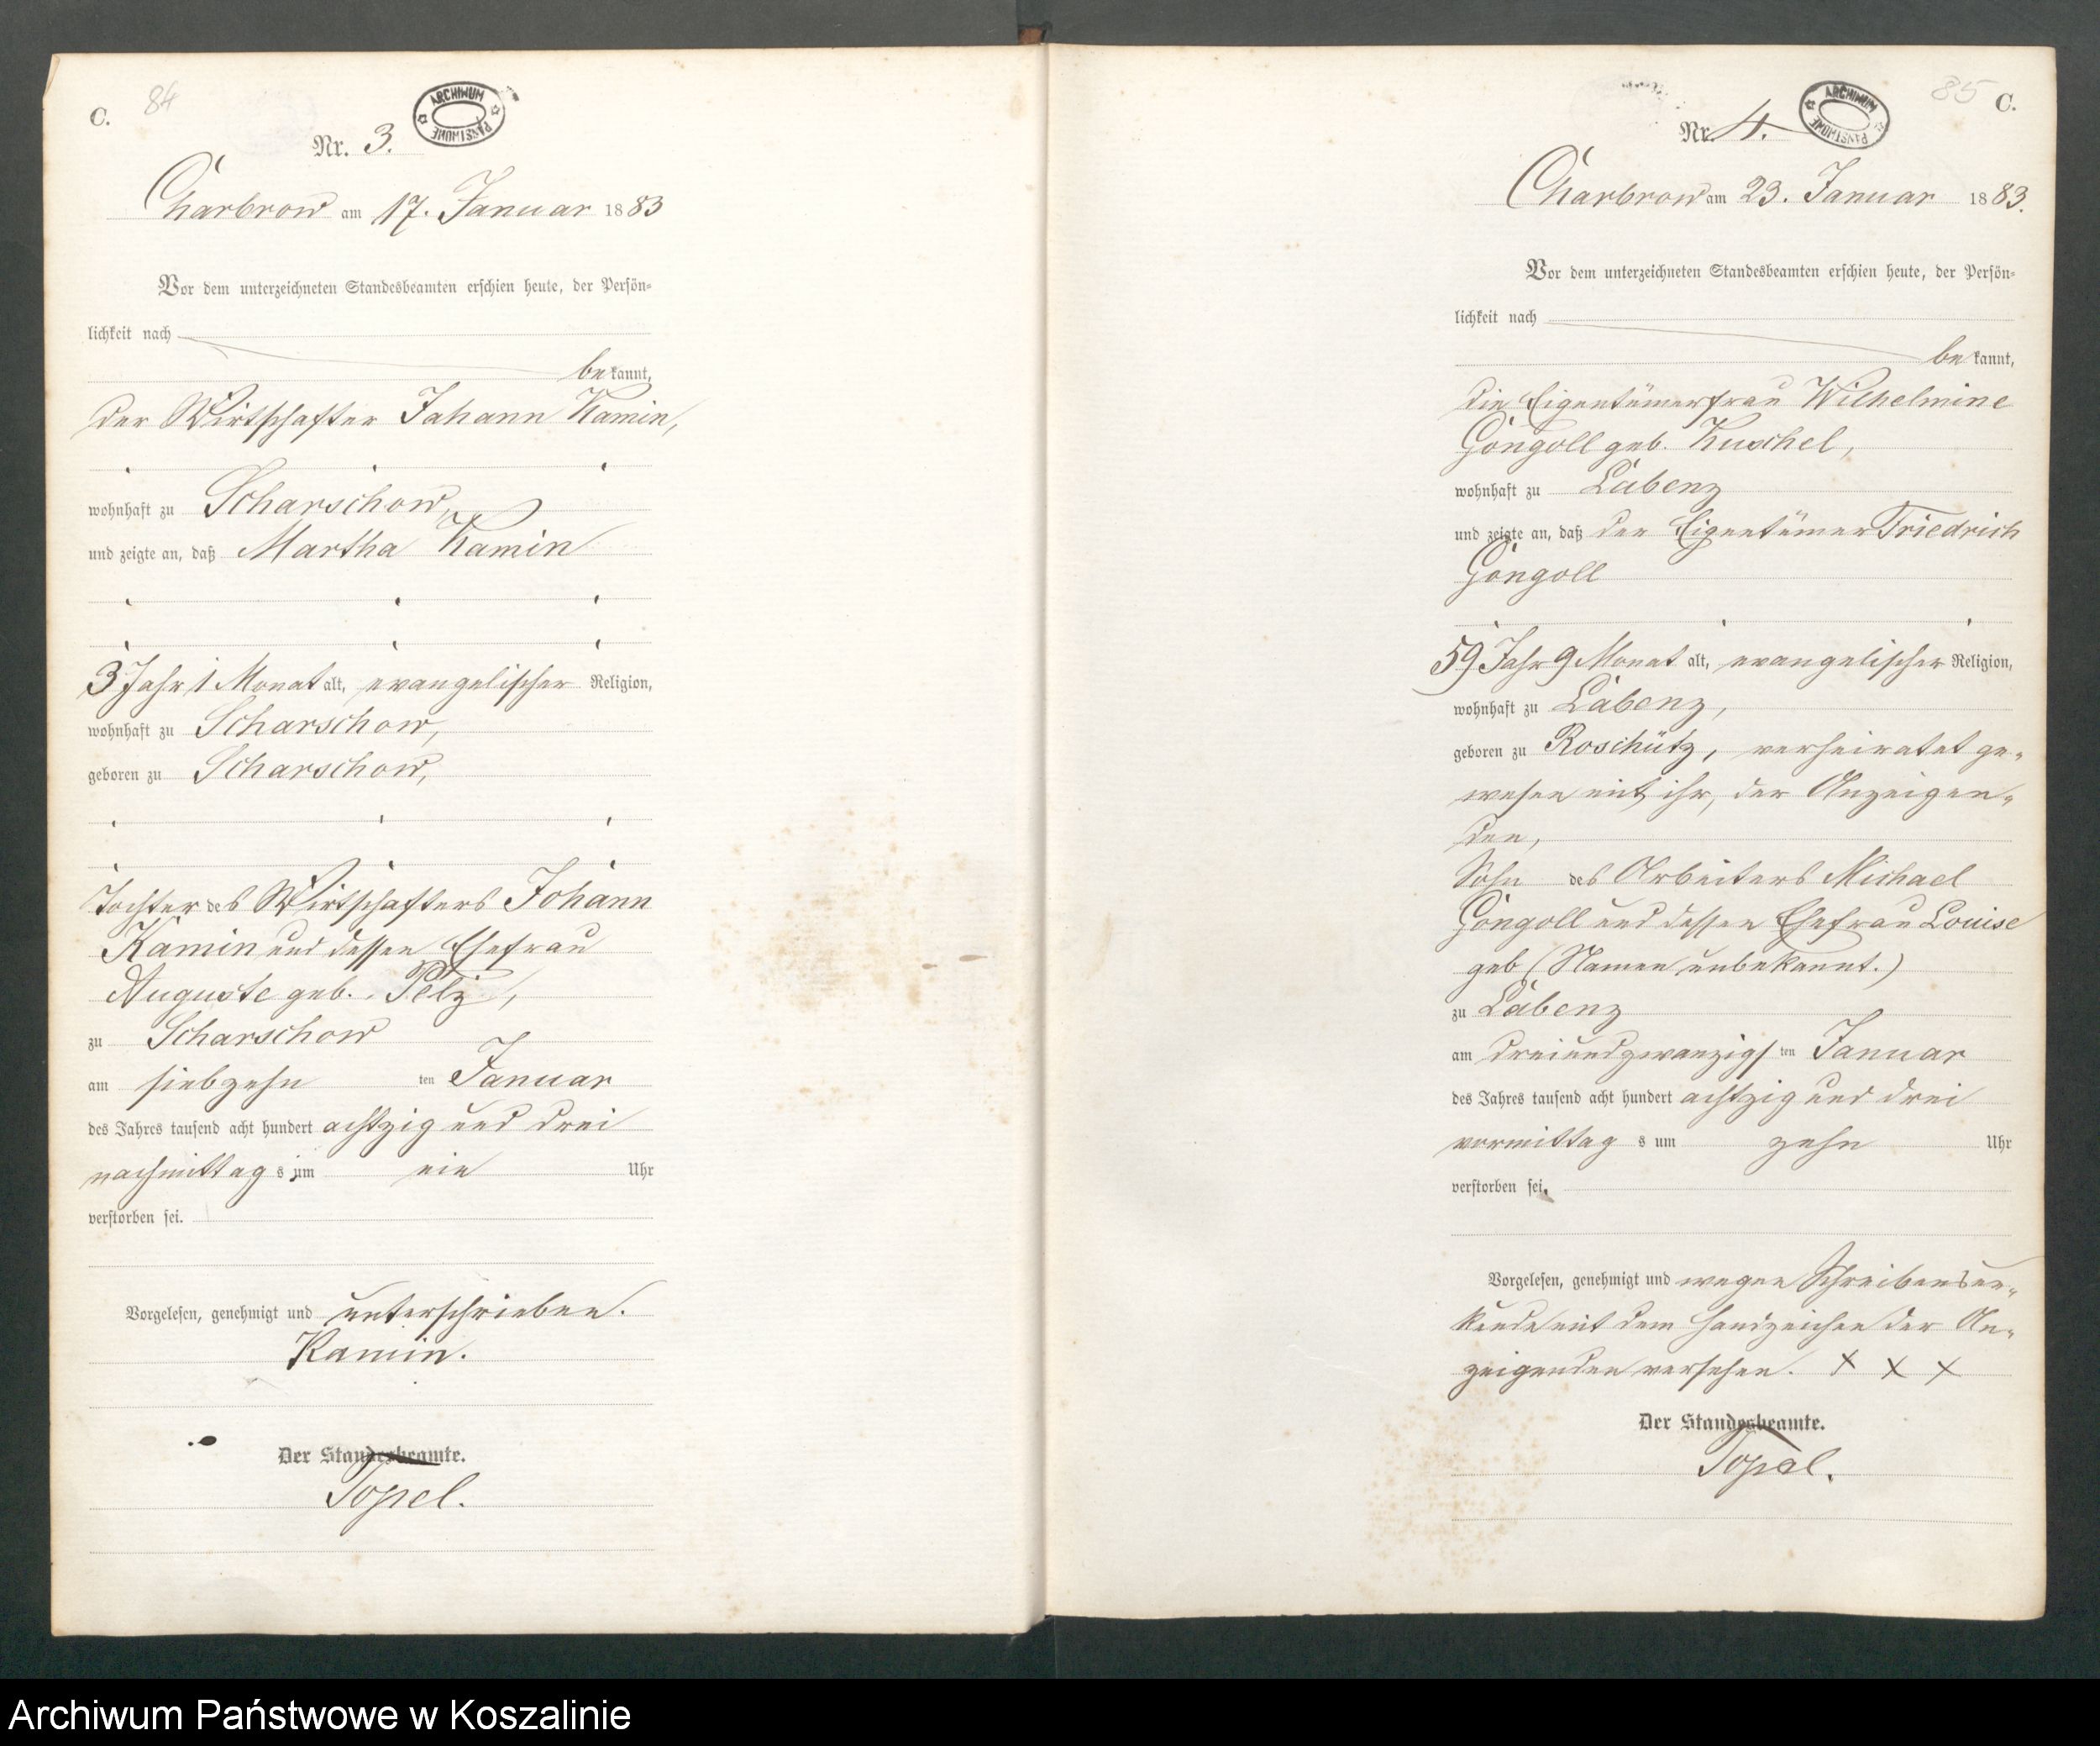 C. 84
Nr. 3.
ARCHIWUM PAŃSTWOWE
Charbrow am 17. Januar 1883
Vor dem unterzeichneten Standesbeamten erschien heute, der Persön=
lichkeit nach
bekannt,
der Wirtschafter Johann Kamin,
wohnhaft zu Scharschow,
und zeigte an, daß Martha Kamin
3 Jahr 1 Monat alt, evangelischer Religion,
wohnhaft zu Scharschow,
geboren zu Scharschow,
Tochter des Wirtschafters Johann
Kamin und dessen Ehefrau
Auguste geb. Pelz,
zu Scharschow
am siebzehnten Januar
des Jahres tausend acht hundert achtzig und drei
nachmittags um ein Uhr
verstorben sei.
Vorgelesen, genehmigt und unterschrieben.
Kamin.
Der Standesbeamte.
Topel.
85 C.
Nr. 4.
ARCHIWUM PAŃSTWOWE
Charbrow am 23. Januar 1883.
Vor dem unterzeichneten Standesbeamten erschien heute, der Persön=
lichkeit nach
bekannt,
die Eigentümerfrau Wilhelmine
Göngoll geb. Kuschel,
wohnhaft zu Labenz
und zeigte an, daß der Eigentümer Friedrich
Göngoll
59 Jahr 9 Monat alt, evangelischer Religion,
wohnhaft zu Labenz,
geboren zu Roschütz, verheiratet ge=
wesen mit ihr, der Anzeigen=
den,
Sohn des Arbeiters Michael
Göngoll und dessen Ehefrau Louise
geb (Namen unbekannt.)
zu Labenz
am dreiundzwanzigsten Januar
des Jahres tausend acht hundert achtzig und drei
vormittags um zehn Uhr
verstorben sei.
Vorgelesen, genehmigt und wegen Schreibensun=
kunde mit dem Handzeichen der An=
zeigenden versehen. X X X
Der Standesbeamte.
Topel.
Archiwum Państwowe w Koszalinie